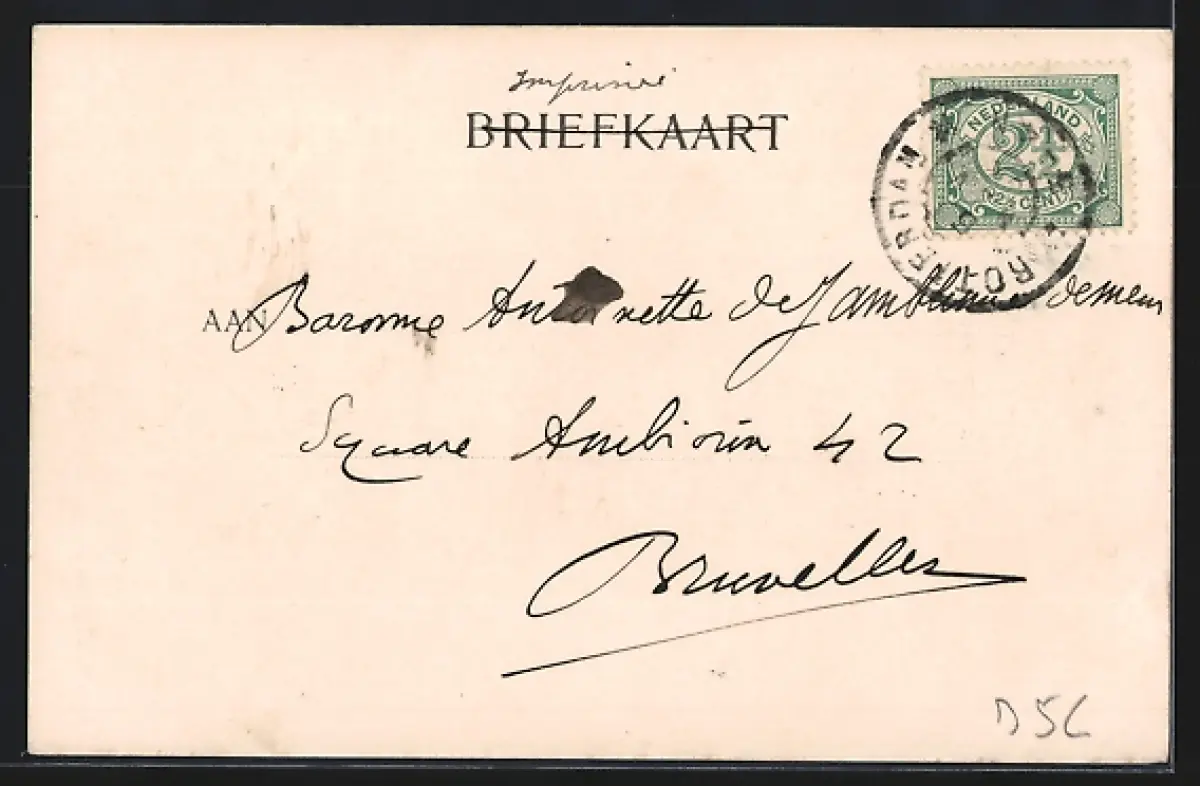 Imprimé
BRIEFKAART
NEDERLAND
2½
2½ CENT
ROTTERDAM
AAN Baronne Antoinette de Jamblinne de meux
Square Ambiorix 42
Bruxelles
D 5C